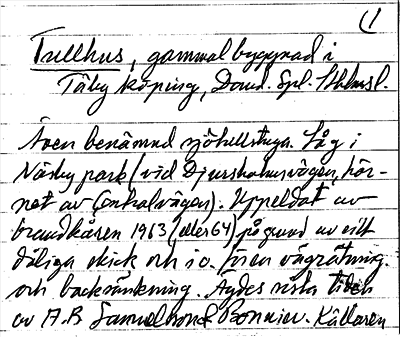 (1
Trellhus, gammal byggnad i
Täby köping, Dand. Spl. Sthlmsl.
Även benämnd sjötullstuga. Låg i
Näsby park (vid Djursholmsvägen, hör-
net av Centralvägen). Uppeldat av
brandkåren 1963 (eller 64) på grund av sitt
dåliga skick och i o. för en vägrätning
och backsänkning. Ägdes sista tiden
av A.B Samuel Bonnier. Källaren